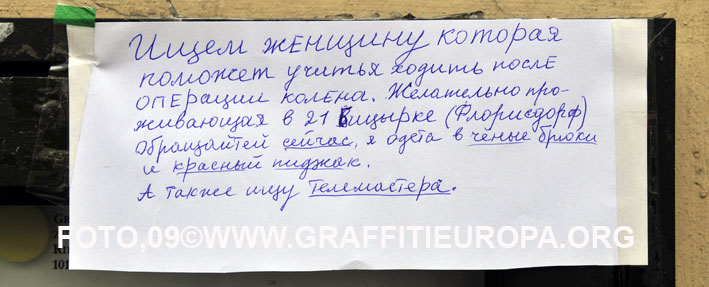 Ищем женщину которая
поможет учитья ходить после
операции колена. Желательно про-
живающая в 21 Бицырке (Флорисдорф)
Обращайтей сейчас, я одета в чёные брюки
и красный пиджак.
А также ищу телемастера.
FOTO,09©WWW.GRAFFITIEUROPA.ORG